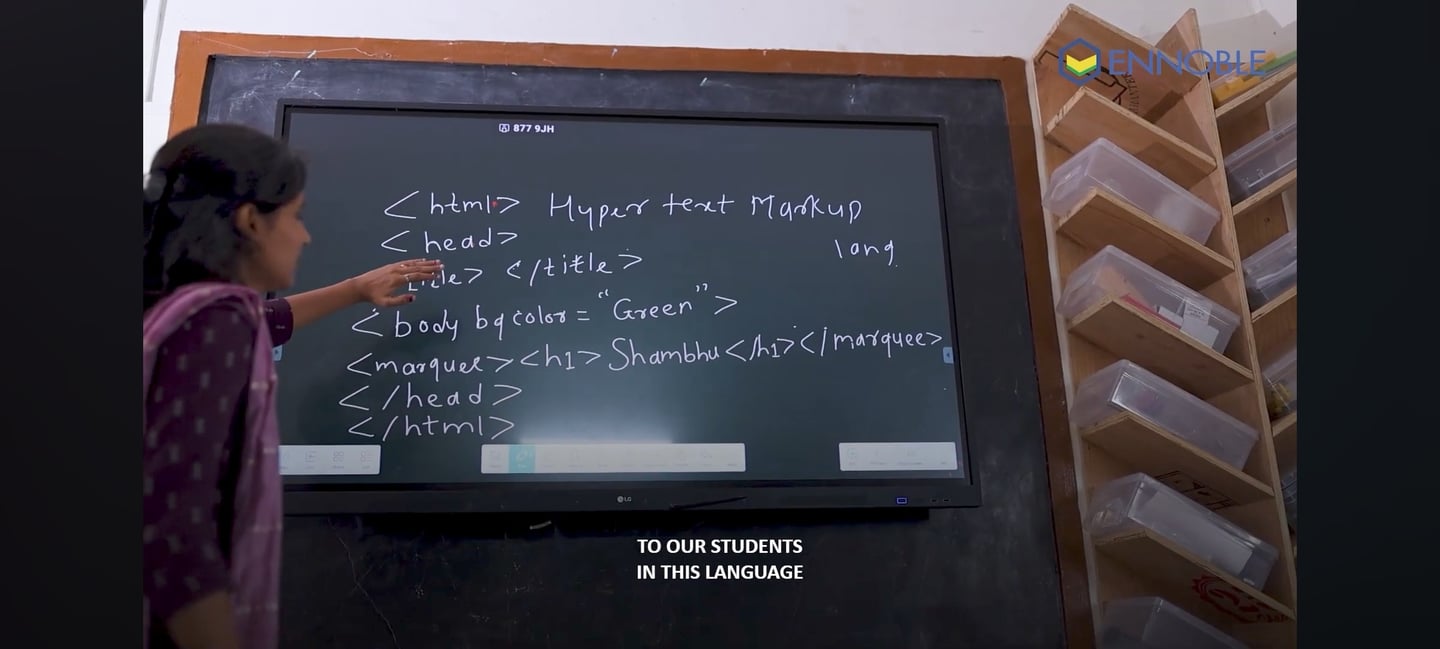 ENNOBLE
877 9JH
<html> Hyper text Markup
lang
<head>
title> </title>
<body bgcolor = "Green">
<marquee><h1> Shambhu </h1></marquee>
</head>
</html>
LG
TO OUR STUDENTS
IN THIS LANGUAGE